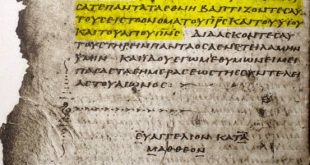 ϹΑΤΕΠΑΝΤΑΤΑΕΘΝΗ ΒΑΠΤΙΖΟΝΤΕϹΑΥ
ΤΟΥϹΕΙϹΤΟΟΝΟΜΑΤΟΥΠΡϹΚΑΙΤΟΥΥΙΟΥ
ΚΑΙΤΟΥΑΓΙΟΥΠΝϹ ΔΙΔΑϹΚΟΝΤΕϹΑΥ
ΤΟΥϹΤΗΡΕΙΝΠΑΝΤΑΟϹΑΕΝΕΤΕΛΑΜΗΝ
ΥΜΙΝ ΚΑΙΙΔΟΥΕΓΩΜΕΘΥΜΩΝΕΙΜΕΙ
ΠΑϹΑϹΤΑϹΗΜΕΡΑϹΕΩϹΤΗϹϹΥΝΤΕΛΕΙ
ΑϹΤΟΥΑΙΩΝΟϹ
ΕΥΑΓΓΕΛΙΟΝ ΚΑΤΑ
ΜΑΘΘΕΟΝ